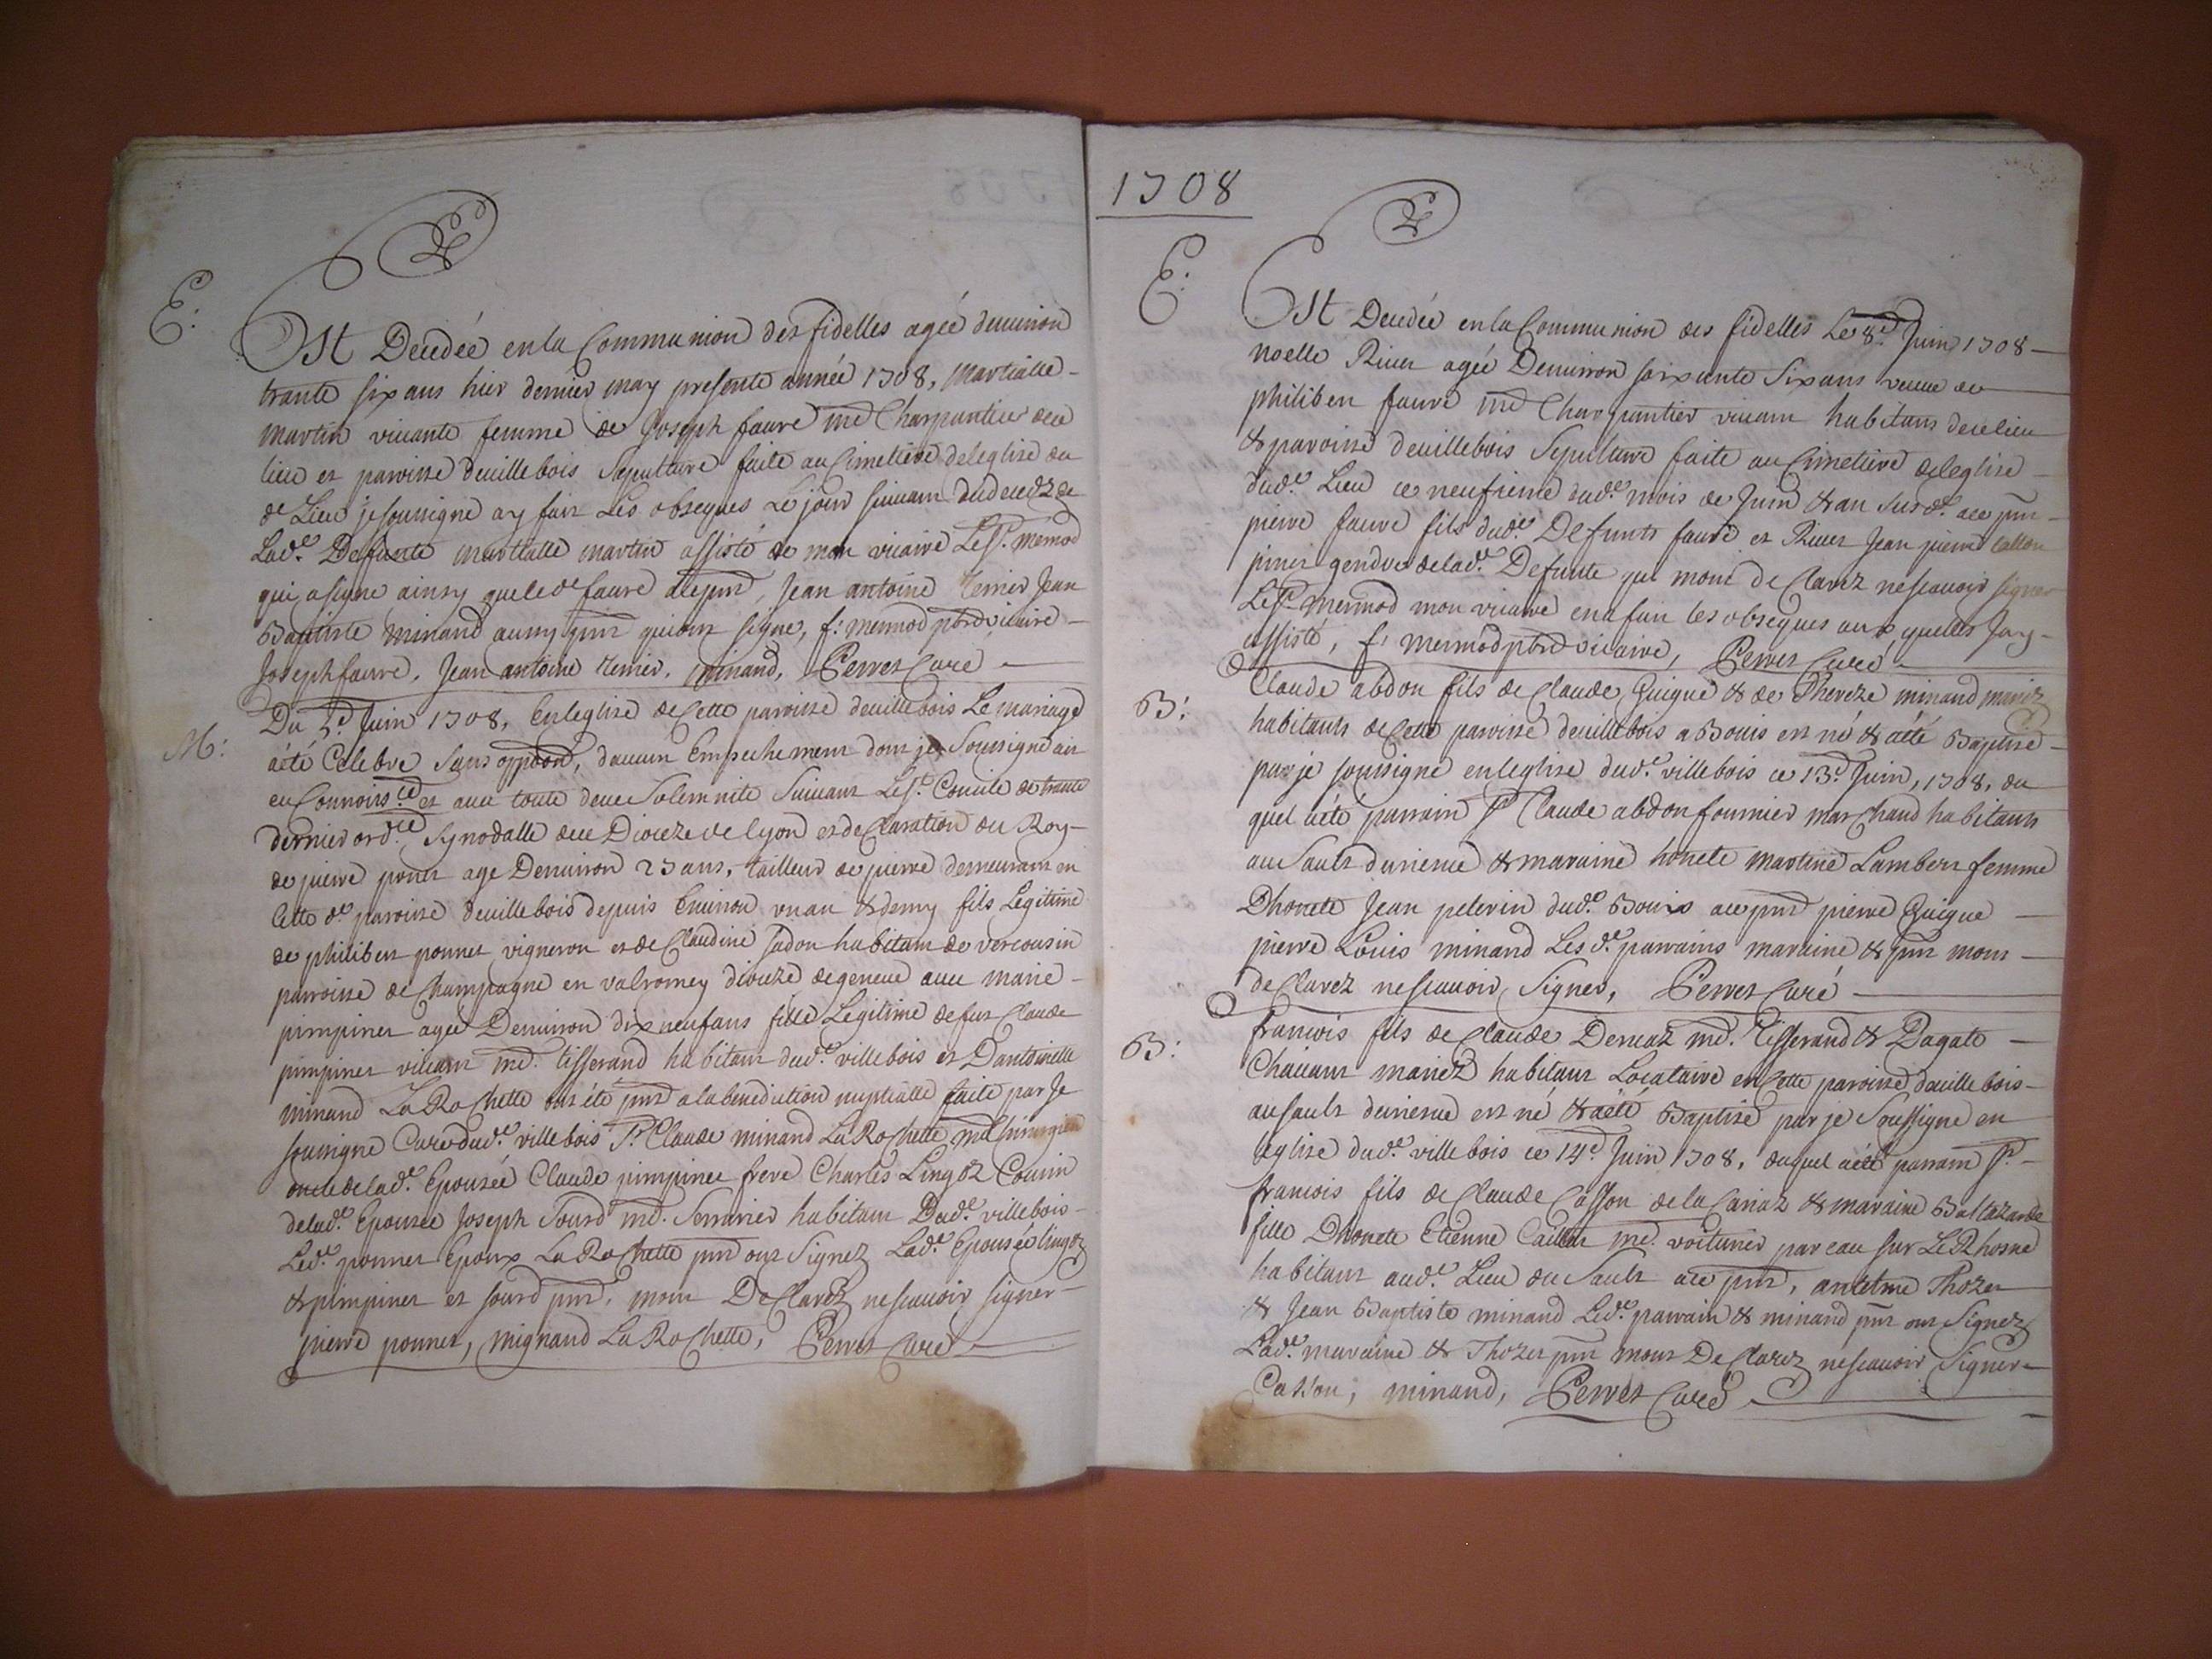 E:
Est Decedée en la Communion des fidelles agée denviron
trante six ans hier dernier may presente année 1708, martialle
martin vivante femme de Joseph favre me Charpantier de ce
lieu et paroisse de villebois Sepulture faite au Cimetiere de leglise du
de Lieu je soussigne ay fait Les obseques Le jour suivant du decedz de
Lade Defunte martialle martin assisté de mon vicaire Le Sr mermod
qui a signe ainsy que le de favre acepnt, Jean antoine Terrier Jean
Baptiste minand aussy pnt qui ont signe, f: mermod pbre vicaire
Joseph favre, Jean antoine terrier, minand, Perret Curé
M:
Du 5e Juin 1708, En leglise de Cette paroisse de villebois Le mariage
a été Celebre Sans oppoon, daucun Empechement dont je Soussigné ait
eu Connoissce et avec toute deue Solemnite Suivant Le St Concile de trante
dernier ordce Synodalle de ce Dioceze de lyon et deClaration du Roy
de pierre ponnet age Denviron 25 ans, tailleur de pierre demeurant en
Cette de paroisse de villebois depuis Environ un an & demy fils Legitime
de philibert ponnet vigneron et de Claudine Jadon habitant de vercousin
paroisse de Champagne en valromey dioceze de geneve avec marie
pimpinet agee Denviron dix neuf ans fille Legitime de fut Claude
pimpinet vivant me tisserand habitant dude villebois et Dantoinette
minand La Rochette ont été pnt a la benediction nuptialle faite par Je
soussigne Curé dude villebois Sr Claude minand La Rochette me Chirurgien
oncle delade Epousée Claude pimpinet frere Charles Lingoz Cousin
delade Epousée Joseph Sourd me Serrurier habitant Dude villebois
Lede ponnet Epoux La Rochette pnt ont Signez Lade Epousée lingoz
& pimpinet et sourd pnt, mont DeClarez ne scavoir signer
pierre ponnet, mignand La Rochette, Perret Curé
1708
E:
Est Decedée en la Communion des fidelles Le 8e Juin 1708
noelle River agée Denviron soixante Six ans veuve de
philibert favre me Charpantier vivant habitant de ce lieu
& paroisse de villebois Sepulture faite au Cimetiere de leglise
dude Lieu ce neufieme dude mois de Juin & an susde ace pnt
pierre favre fils dude Defunts favre et River Jean pierre
gendre de lade Defunte qui mont deClarez ne scavoir signer
Le Sr mermod mon vicaire en a fait les obseques aux quelles Jay
assisté, f: mermod pbre vicaire, Perret Curé
B:
Claude abdon fils de Claude Guigue & de Thereze minand mariez
habitants de Cette paroisse de villebois a Bouis est né & a été Baptisé
par je soussigne en leglise dude villebois ce 13e Juin, 1708, du
quel a été parrain Sr Claude abdon fournier marChand habitant
au Sault & maraine honete martine Lambert femme
Dhonete Jean pelerin dude Bouis ace pnt pierre Guigue
pierre Louis minand Lesde parrains maraine & pnt mont
deClarez ne scavoir Signer, Perret Curé
B:
francois fils de Claude Derucaz me Tisserand & Dagate
Chavant mariez habitant Locataire en Cette paroisse de villebois
au sault est né & a été Baptisé par je Soussigne en
leglise dude villebois ce 14e Juin 1708, duquel a été parrain Sr
francois fils de Claude Casson de la Cariaz & maraine Baltazarde
fille Dhonete Etienne Caillat me voiturier par eau sur Le Rhosne
habitant aude Lieu du Sault ace pnt, antelme Thozet
& Jean Baptiste minand Lede parrain & minand pnt ont Signez
Lade maraine & Thozet pnt mont DeClarez ne scavoir Signer
Casson, minand, Perret Curé